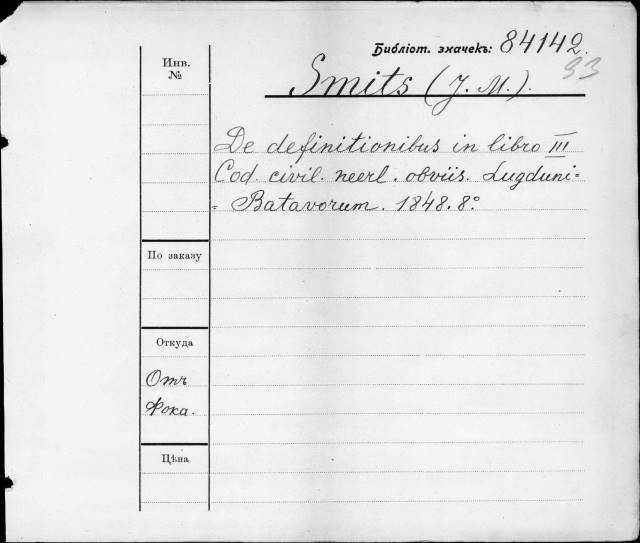 Библіот. значекъ: 84142.
93
Инв.
№
Smits (J. M.).
De definitionibus in libro III
Cod. civil. neerl. obviis. Lugduni=
= Batavorum. 1848. 8°
По заказу
Откуда
Отъ
Фока.
Цѣна